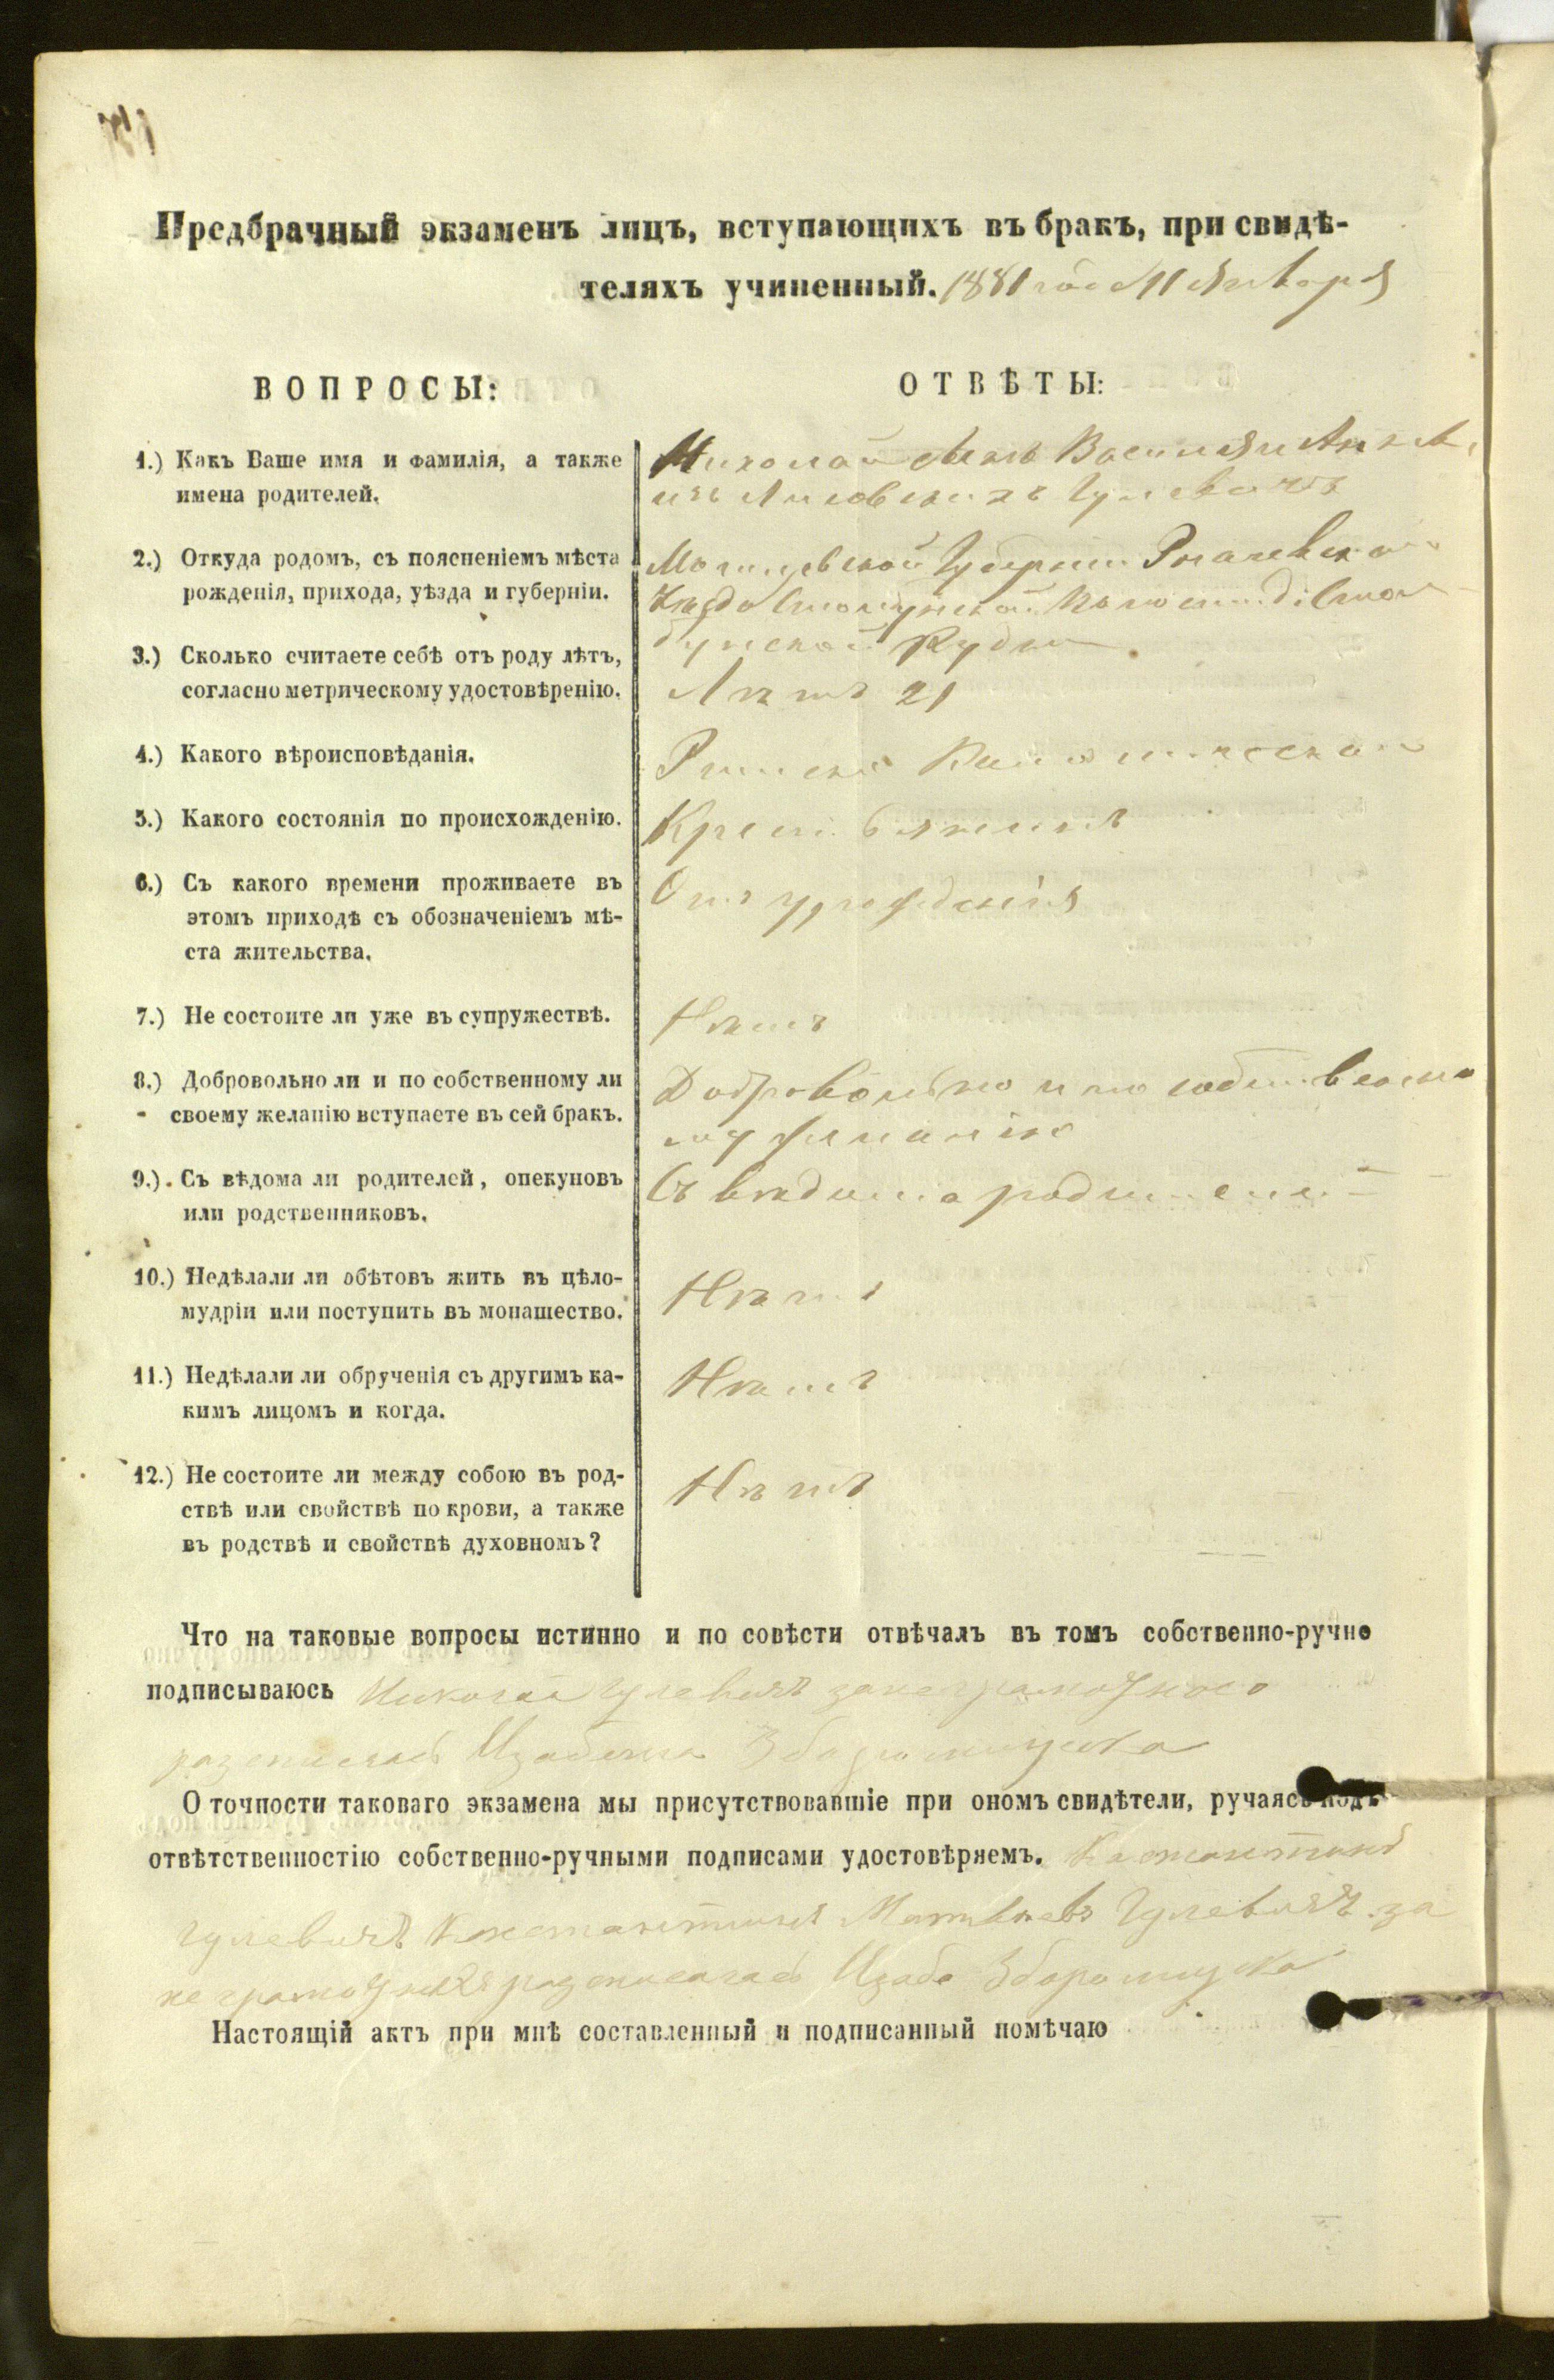 Предбрачный экзаменъ лицъ, вступающихъ въ бракъ, при свидѣ-
теляхъ учиненный. 1881 года 11 Января
ВОПРОСЫ:
ОТВѢТЫ:
1.) Какъ Ваше имя и фамилія, а также
имена родителей.
Николай сынъ Василія и
изъ Гулевичъ
2.) Откуда родомъ, съ поясненіемъ мѣста
рожденія, прихода, уѣзда и губерніи.
Могилевской Губерніи Рогачевскаго
Уѣзда
Рудни
3.) Сколько считаете себѣ отъ роду лѣтъ,
согласно метрическому удостовѣренію.
Лѣтъ 21
4.) Какого вѣроисповѣданія.
Римско Католическаго
5.) Какого состоянія по происхожденію.
Крестьянинъ
6.) Съ какого времени проживаете въ
этомъ приходѣ съ обозначеніемъ мѣ-
ста жительства.
Отъ урожденія
7.) Не состоите ли уже въ супружествѣ.
Нѣтъ
8.) Добровольно ли и по собственному ли
своему желанію вступаете въ сей бракъ.
Добровольно и по собственно
му желанію
9.) Съ вѣдома ли родителей, опекуновъ
или родственниковъ.
Съ вѣдома родителей
10.) Недѣлали ли обѣтовъ жить въ цѣло-
мудріи или поступить въ монашество.
Нѣтъ
11.) Недѣлали ли обрученія съ другимъ ка-
кимъ лицомъ и когда.
Нѣтъ
12.) Не состоите ли между собою въ род-
ствѣ или свойствѣ по крови, а также
въ родствѣ и свойствѣ духовномъ?
Нѣтъ
Что на таковые вопросы истинно и по совѣсти отвѣчалъ въ томъ собственно-ручно
подписываюсь Николай Гулевичъ за
Изабела
О точности таковаго экзамена мы присутствовавшіе при ономъ свидѣтели, ручаясь подъ
отвѣтственностію собственно-ручными подписами удостовѣряемъ.
Гулевичъ Гулевичъ за

Настоящій актъ при мнѣ составленный и подписанный помѣчаю